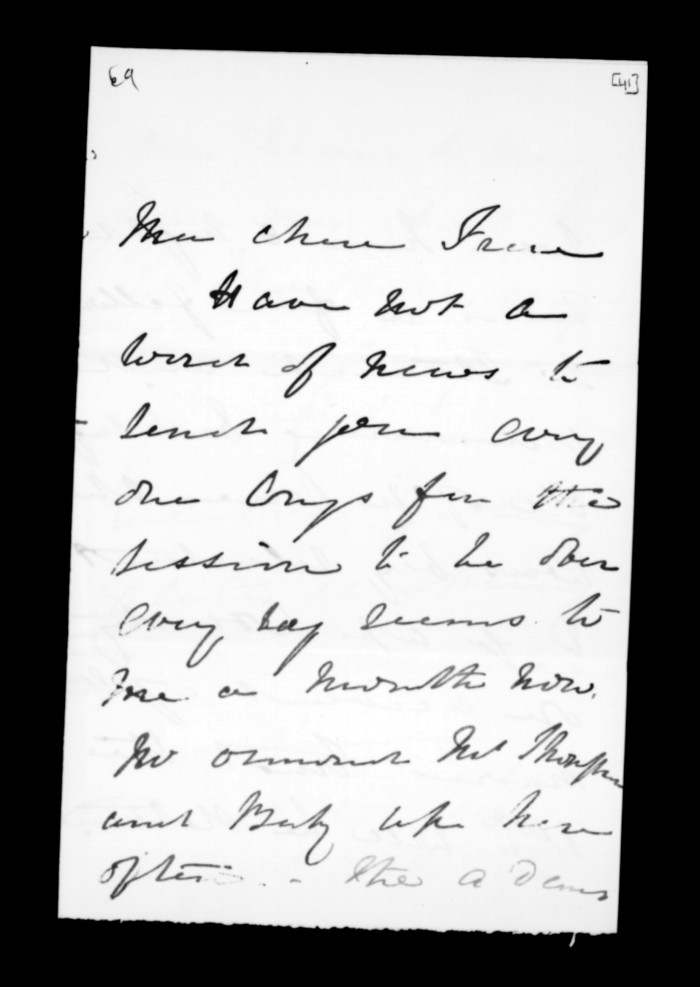 69 [41]
Ma chere Irene
Have not a
word of news to
send you every
one longs for the
session to be over
every day seems to
me a month now.
Mr Ormond Mr Thompson
and Baby are here
often. - The Adams